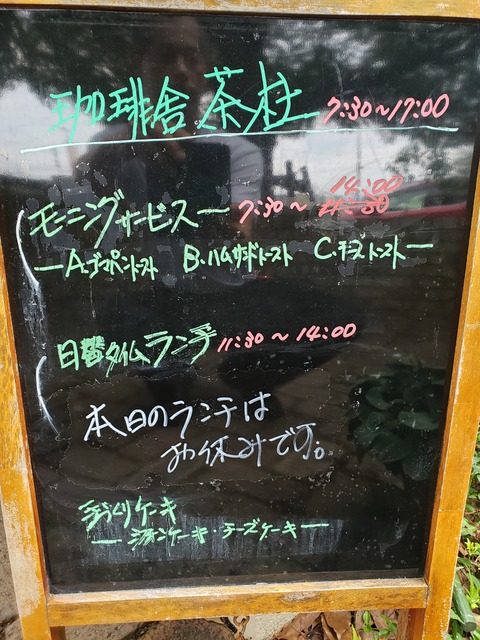 珈琲舎 茶柱 7:30〜17:00
モーニングサービス 7:30〜 14:00
A.ゴマパントースト B.ハムサンドトースト C.チーズトースト
日替タイムランチ 11:30〜14:00
本日のランチは
お休みです。
手づくりケーキ
シフォンケーキ・チーズケーキ